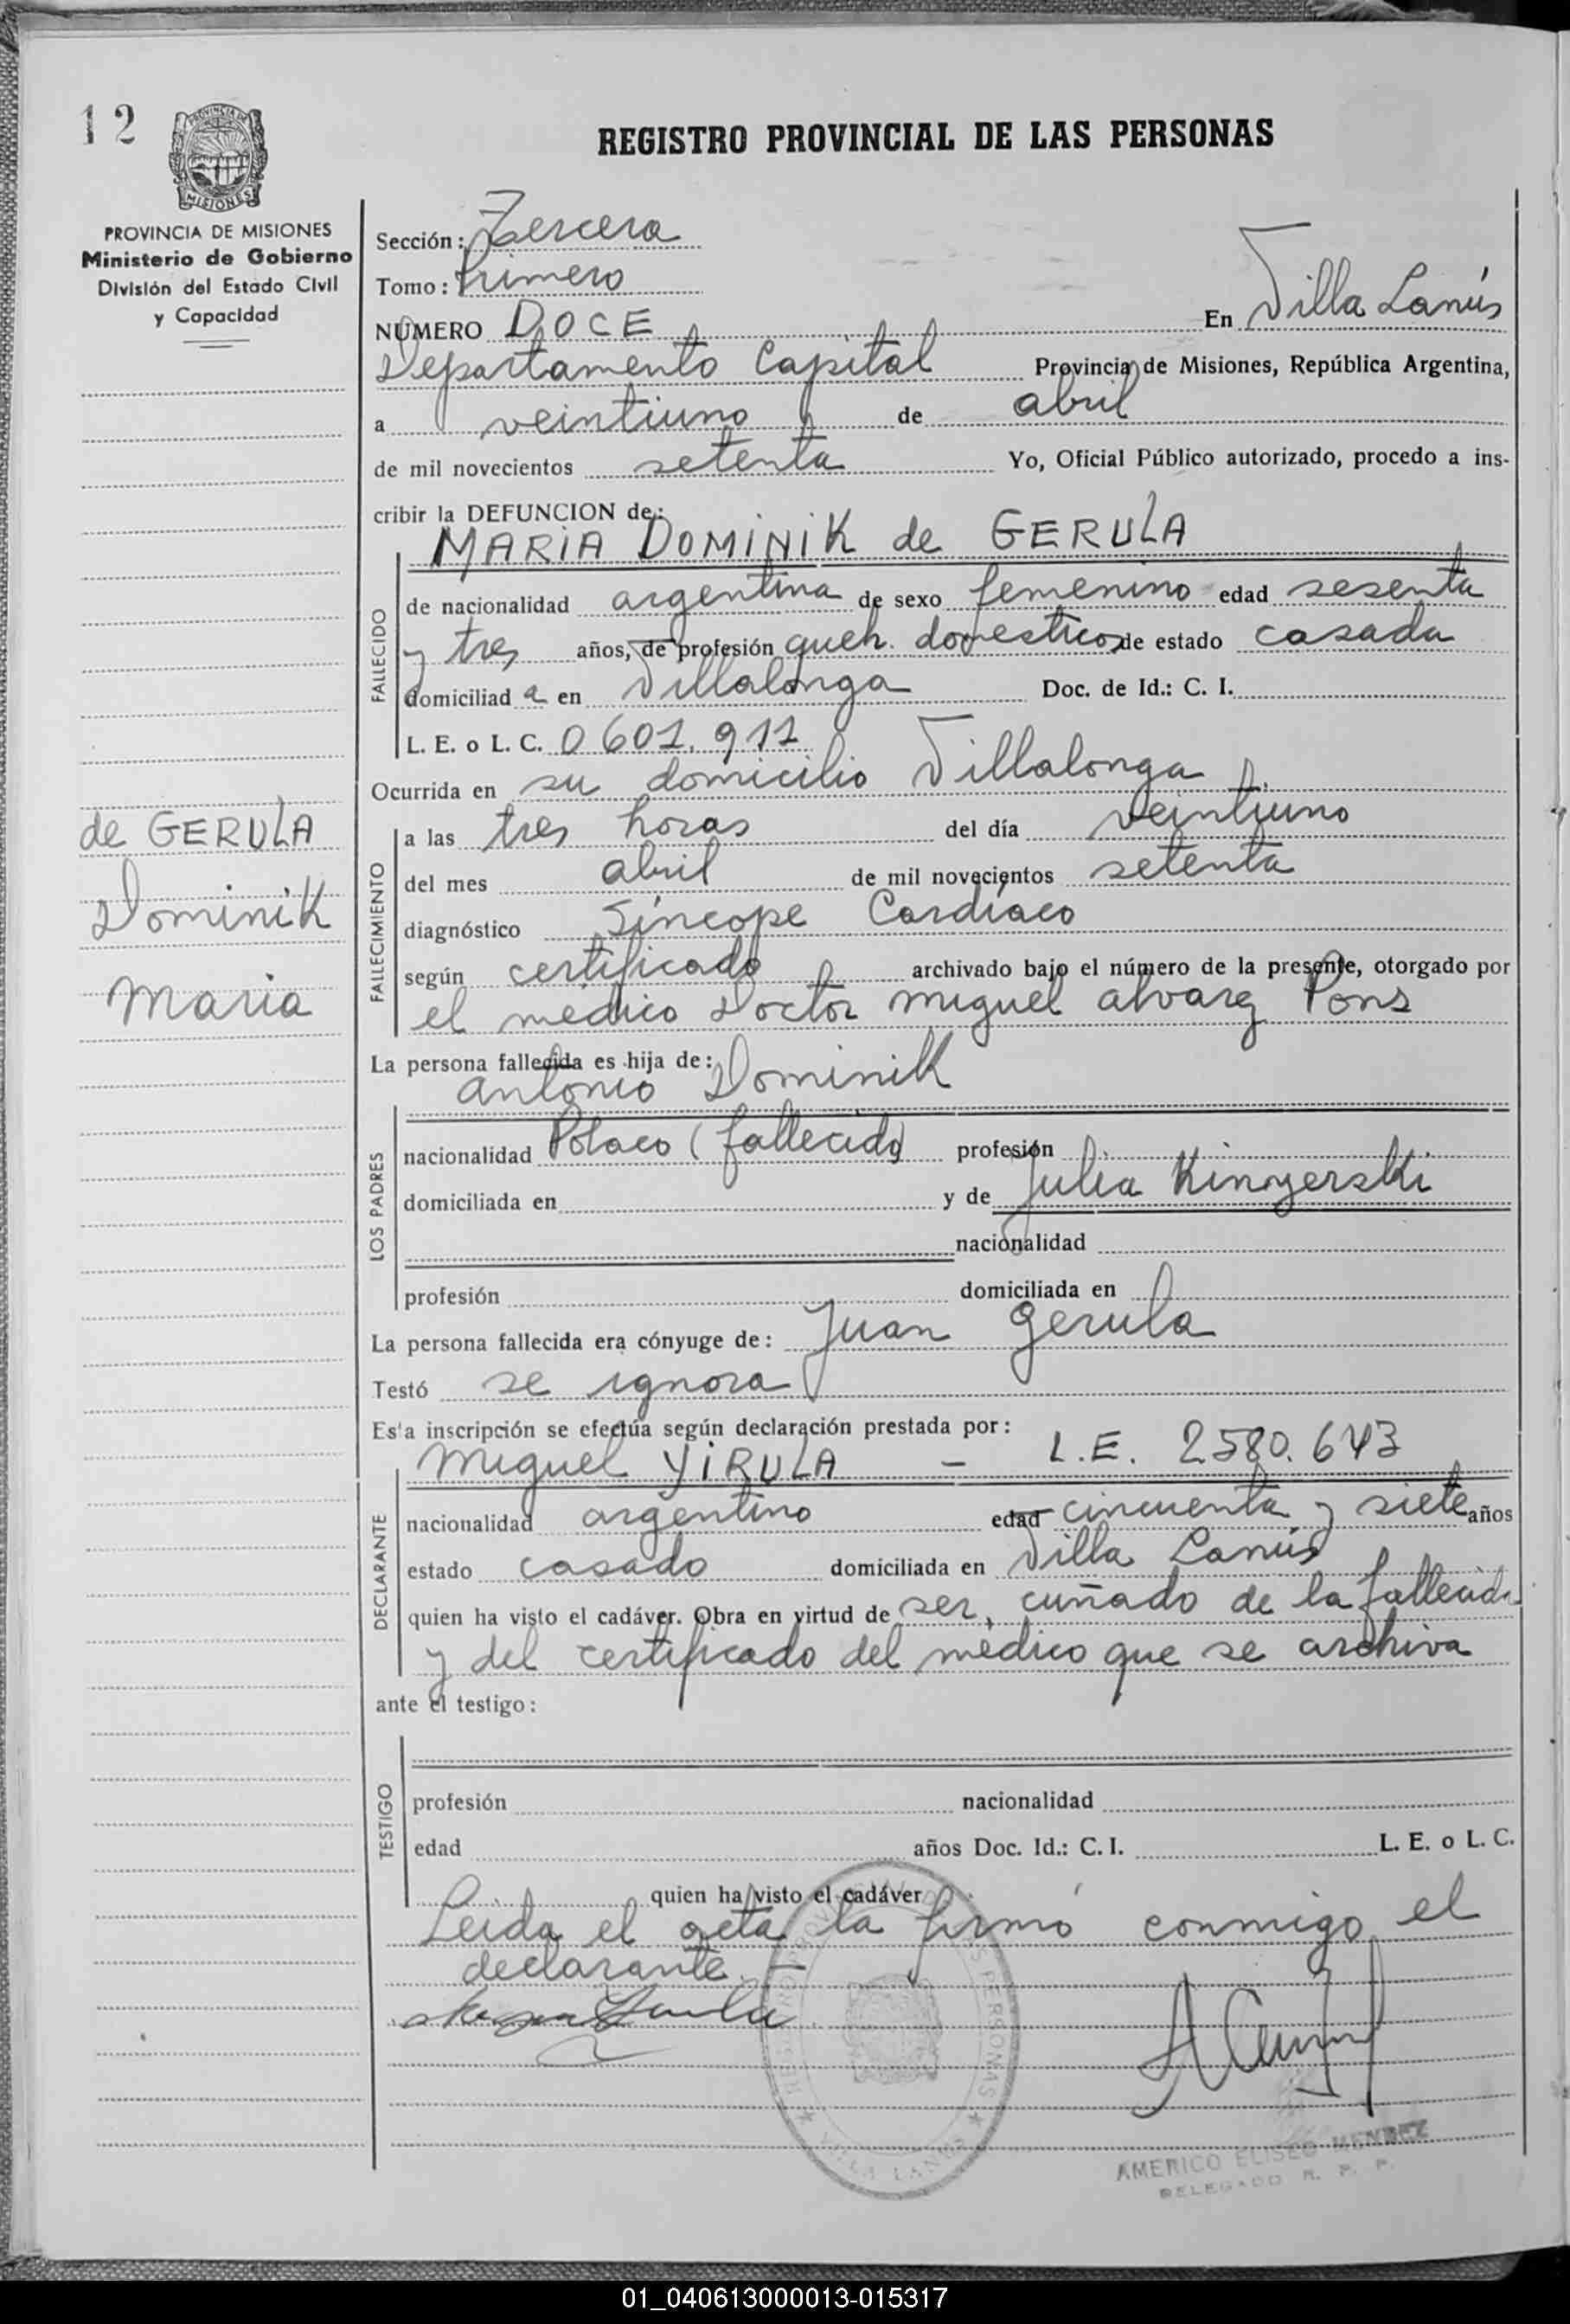 12
PROVINCIA DE
MISIONES
REGISTRO PROVINCIAL DE LAS PERSONAS
PROVINCIA DE MISIONES
Ministerio de Gobierno
División del Estado Civil
y Capacidad
Sección: Tercera
Tomo: Primero
NUMERO DOCE En Villa Lanús
Departamento Capital Provincia de Misiones, República Argentina,
a veintiuno de abril
de mil novecientos setenta Yo, Oficial Público autorizado, procedo a ins-
cribir la DEFUNCION de:
MARIA DOMINIK de GERULA
FALLECIDO
de nacionalidad argentina de sexo femenino edad sesenta
y tres años, de profesión queh. domesticos de estado casada
domiciliad a en Villalonga Doc. de Id.: C. I.
L. E. o L. C. 0601.911
Ocurrida en su domicilio Villalonga
de GERULA
Dominik
Maria
FALLECIMIENTO
a las tres horas del día veintiuno
del mes abril de mil novecientos setenta
diagnóstico Síncope Cardíaco
según certificado archivado bajo el número de la presente, otorgado por
el médico Doctor Miguel Alvarez Pons
La persona fallecida es hija de:
Antonio Dominik
LOS PADRES
nacionalidad Polaco (fallecido) profesión
domiciliada en y de Julia
nacionalidad
profesión domiciliada en
La persona fallecida era cónyuge de: Juan Gerula
Testó se ignora
Esta inscripción se efectúa según declaración prestada por:
Miguel YIRULA - L.E. 2580.643
DECLARANTE
nacionalidad argentino edad cincuenta y siete años
estado casado domiciliada en Villa Lanús
quien ha visto el cadáver. Obra en virtud de ser, cuñado de la fallecida
y del certificado del médico que se archiva
ante el testigo:
TESTIGO
profesión nacionalidad
edad años Doc. Id.: C. I. L. E. o L. C.
quien ha visto el cadáver
Leida el acta la firmó conmigo el
declarante.-
VILLA LANUS
AMERICO ELISEO MENDEZ
DELEGADO R. P. P.
01_040613000013-015317